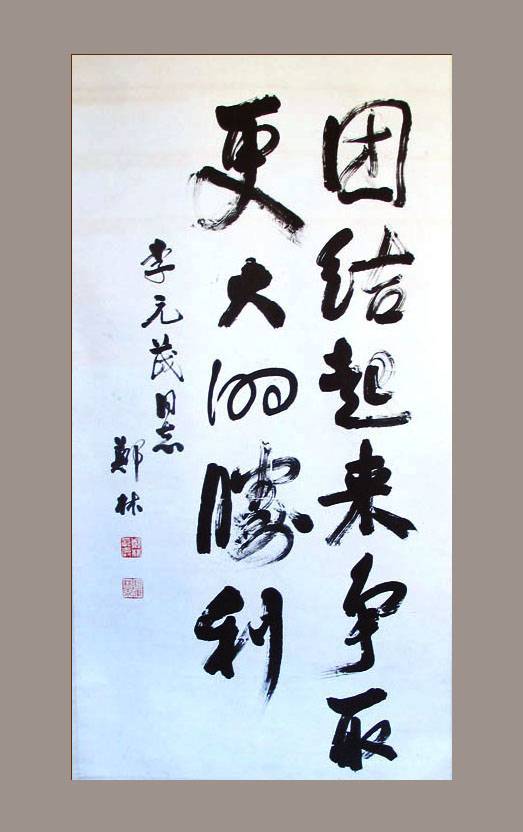 团结起来争取
更大的勝利
李元茂同志
鄭林